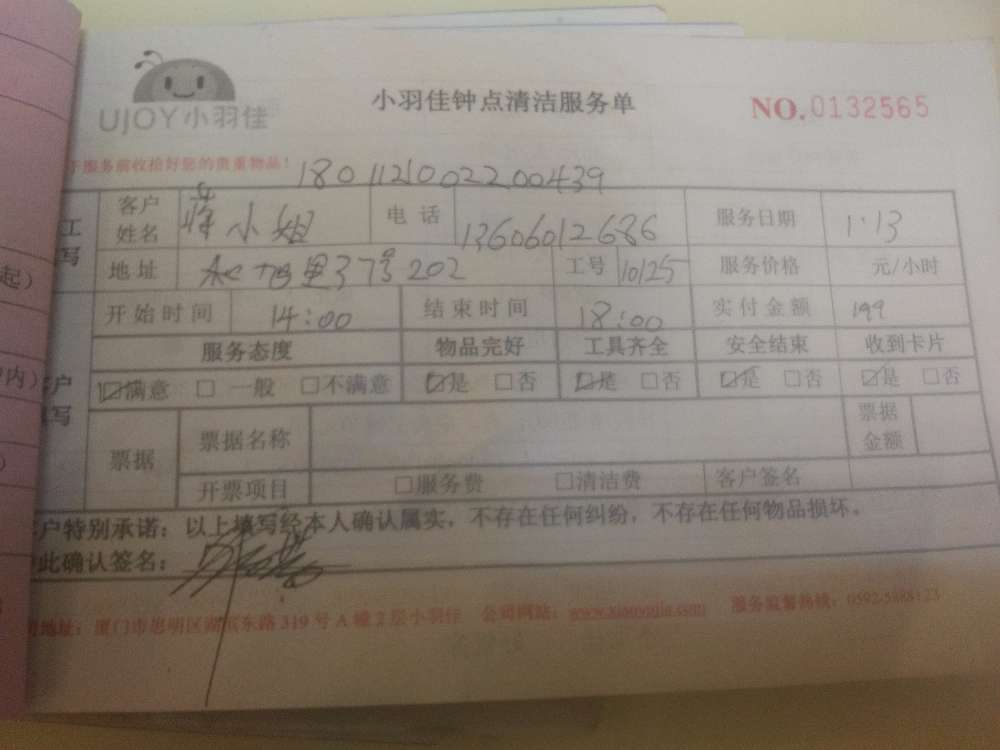 UJOY小羽佳
小羽佳钟点清洁服务单
NO.0132565
服务前收拾好您的贵重物品!
18011210022200439
工 客户姓名 小姐 电话 13606012686 服务日期 1·13
写 地址 里37号202 工号 10125 服务价格 元/小时
起)
开始时间 14:00 结束时间 18:00 实付金额 199
服务态度 物品完好 工具齐全 安全结束 收到卡片
内) 户 ☑满意 □一般 □不满意 ☑是 □否 ☑是 □否 ☑是 □否 ☑是 □否
写 票据 票据名称 票据金额
开票项目 □服务费 □清洁费 客户签名
户特别承诺:以上填写经本人确认属实,不存在任何纠纷,不存在任何物品损坏。
此确认签名:
地址:厦门市思明区南东路319号A幢2层小羽佳 公司网站:www.xiaoyujia.com 服务监督热线:0592-5888123